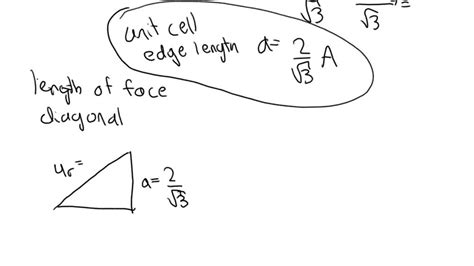 √3
√3 =
unit cell
edge length a = 2/√3 A
length of face
diagonal
4r =
a = 2/√3